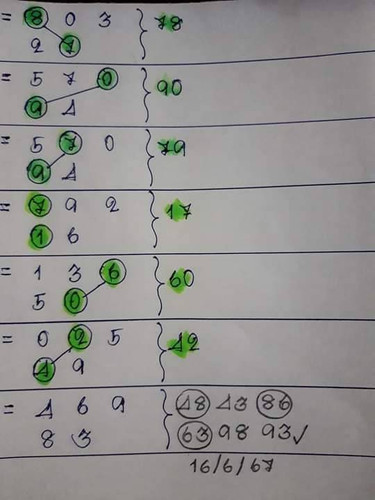 = 8 0 3 } 78
2 7
= 5 7 0 } 90
9 4
= 5 7 0 } 79
9 4
= 7 9 2 } 17
1 6
= 1 3 6 } 60
5 0
= 0 2 5 } 42
4 9
= 4 6 9 } 48 43 86
8 3 63 98 93✓
16/6/67